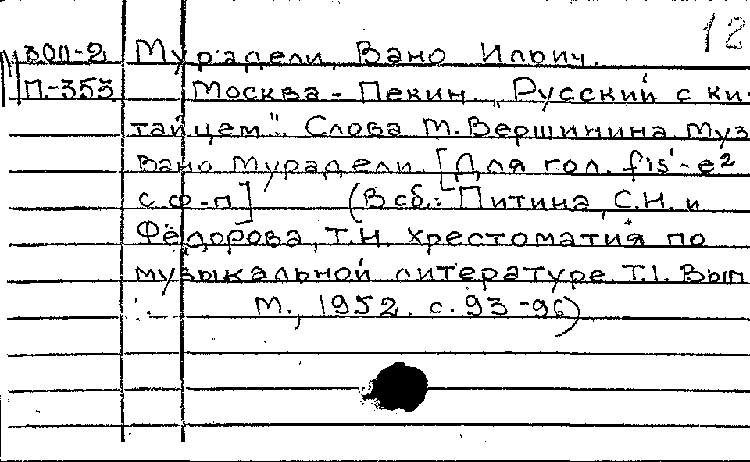 12
30П-2 Мурадели, Вано Ильич.
П.-353 Москва - Пекин. „Русский с ки-
тайцем". Слова М. Вершинина. Муз
Вано Мурадели. [Для гол. fis'-e²
с ф-п] (В сб.: Питина, С.Н. и
Фёдорова, Т.Н. хрестоматия по
музыкальной литературе. Т.I. Вып
М., 1952. с. 93-96)